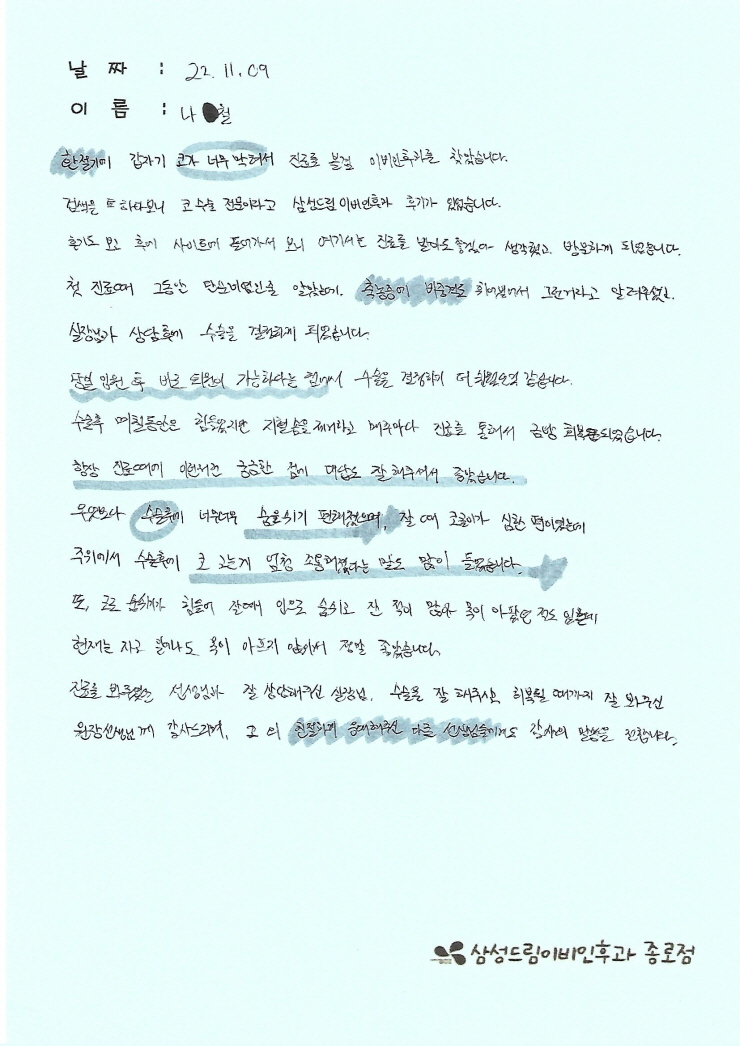 날 짜 : 22. 11. 09
이 름 : 나 철
환절기에 갑자기 코가 너무 막혀서 진료를 볼겸 이비인후과를 찾았습니다.
검색을 하다보니 코수술 전문이라고 삼성드림이비인후과 후기가 있었습니다.
후기도 보고 후에 사이트에 들어가서 보니 여기서는 진료를 받아도 좋겠다 생각했고. 방문하게 되었습니다.
첫 진료때 그동안 단순비염인줄 알았는데. 축농증에 비중격도 휘어있어서 그런거라고 알려주셨고.
실장님과 상담후에 수술을 결정하게 되었습니다.
당일 입원 후 바로 퇴원이 가능하다는 점에서 수술을 결정하기 더 쉬웠던것 같습니다.
수술후 며칠동안은 힘들었지만 지혈솜을 제거하고 매주마다 진료를 통해서 금방 회복되었습니다.
항상 진료때에 이런저런 궁금한 점에 대답도 잘 해주셔서 좋았습니다.
무엇보다 수술후에 너무너무 숨쉬기 편해졌으며, 잘 때 코골이가 심한 편이었는데
주위에서 수술후에 코 고는게 엄청 조용해졌다는 말도 많이 들었습니다.
또, 코로 숨쉬기가 힘들어 잘때에 입으로 숨쉬고 잔 적이 많아 목이 아팠던 적도 있는데
현재는 자고 일어나도 목이 아프지 않아서 정말 좋았습니다.
진료를 봐주셨던 선생님과 잘 상담해주신 실장님, 수술을 잘 해주시고, 회복될 때까지 잘 봐주신
원장선생님께 감사드리며, 그 외 친절하게 응대해주신 다른 선생님들에게도 감사의 말씀을 전합니다.
삼성드림이비인후과 종로점